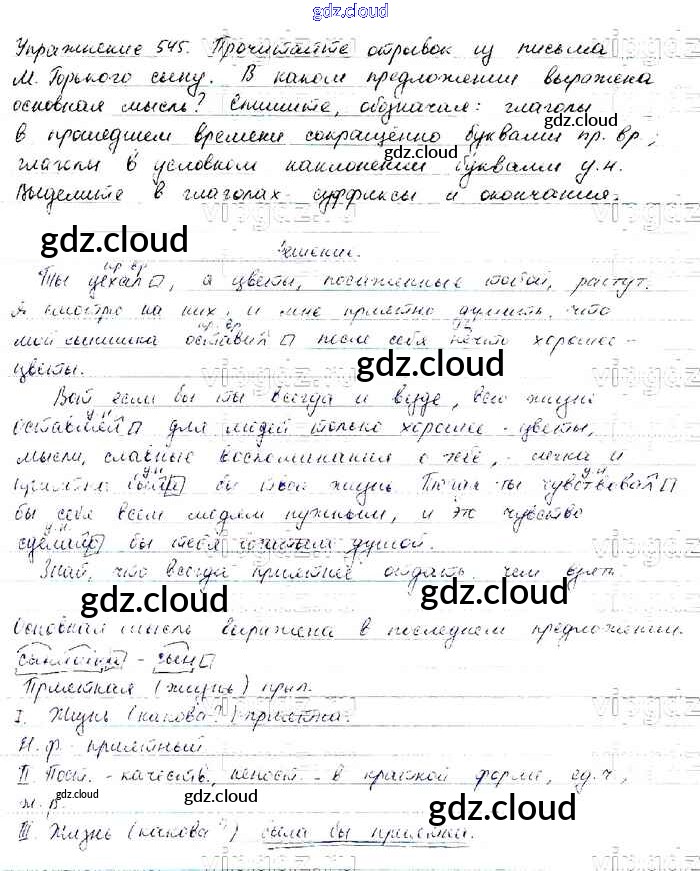 gdz.cloud
Упражнение 545. Прочитайте отрывок из письма
М. Горького сыну. В каком предложении выражена
основная мысль? Спишите, обозначая: глаголы
в прошедшем времени сокращённо буквами пр. вр.;
глаголы в условном наклонении буквами у.н.
Выделите в глаголах суффиксы и окончания.
Решение.
Ты уехал, а цветы, посаженные тобой, растут.
Я смотрю на них, и мне приятно думать, что
мой сынишка оставил после себя нечто хорошее -
цветы.
Вот если бы ты всегда и везде, всю жизнь
оставлял для людей только хорошее - цветы,
мысли, славные воспоминания о тебе, - легка и
приятна была бы твоя жизнь. Тогда ты чувствовал
бы себя всем людям нужным, и это чувство
сделало бы тебя богатым душой.
Знай, что всегда приятнее отдать, чем взять.
Основная мысль выражена в последнем предложении.
сынишка - сын
Приятная (жизнь) прил.
I. Жизнь (какова?) приятна.
Н.ф. - приятный
II. Пост. - качеств., непост. - в краткой форме, ед.ч.,
ж.р.
III. Жизнь (какова?) была бы приятна.